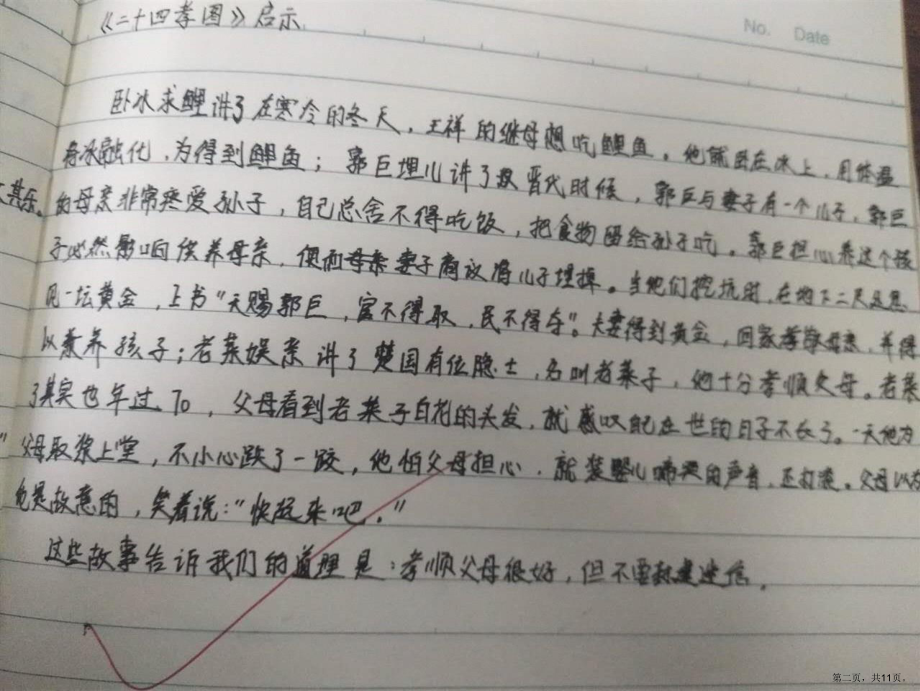 《二十四孝图》启示
No. Date
卧冰求鲤讲了在寒冷的冬天，王祥的继母想吃鲤鱼。他就卧在冰上，用体温
将冰融化，为得到鲤鱼；郭巨埋儿讲了晋代时候，郭巨与妻子有一个儿子，郭巨
其乐。
的母亲非常疼爱孙子，自己总舍不得吃饭，把食物留给孙子吃。郭巨担心养这个孩
子必然影响供养母亲，便和妻子商议将儿子埋掉。当他们挖坑时，在地下二尺处忽
见一坛黄金，上书“天赐郭巨，官不得取，民不得夺”。夫妻得到黄金，回家孝敬母亲，并得
以兼养孩子；老莱娱亲讲了楚国有位隐士，名叫老莱子，他十分孝顺父母。老莱
了其实也年过70，父母看到老莱子白花的头发，就感叹自己在世的日子不长了。一天他为
父母取浆上堂，不小心跌了一跤，他怕父母担心，就装婴儿啼哭的声音，还打滚。父母以为
他是故意的，笑着说：“快起来吧。”
这些故事告诉我们的道理是：孝顺父母很好，但不要封建迷信。
第二页，共11页。